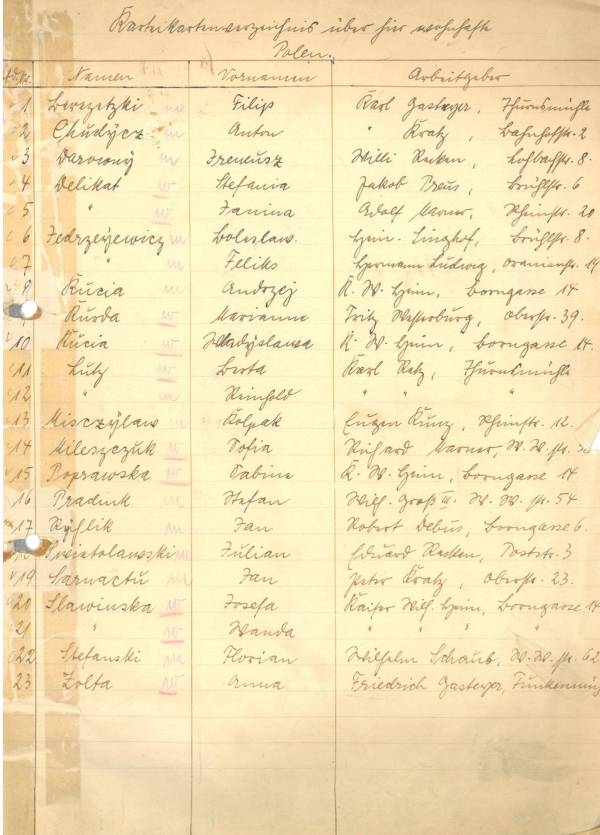 Karteikartenverzeichnis über hier wohnhafte
Polen.
Namen Vornamen Arbeitgeber
1 Berezetzki m Filip Karl Gasteyer, Thurnsmühle
2 Chudycz m Anton " Kratz, Bahnhofstr. 2
3 Darowny m Ireneusz Willi Recken, Lohbachstr. 8.
4 Delikat w Stefania Jakob Preus, Brühlstr. 6
5 " w Janina Adolf Warner, Rheinstr. 20
6 Jedrzeyewicz m Boleslaw. Heinr. Linghof, Brühlstr. 8.
7 " m Feliks Hermann Ludwig, Oranienstr. 14
8 Kucia m Andrzej K. W. Heim, Borngasse 14
Kurda w Marianne Fritz Westerburg, Oberstr. 39.
10 Kucia w Wladyslawa K. W. Heim, Borngasse 14.
11 Lutz w Berta Karl Retz, Thurnsmühle
12 " m Reinhold " " "
13 Misczylaw m Kolpak Eugen Kunz, Rheinstr. 12.
14 Mileszczuk w Sofia Richard Warner, W. W. str.
15 Poprawska w Sabina K. W. Heim, Borngasse 14
16 Pradnik m Stefan Wilh. Groß III. W. W. str. 54
17 Ryflik m Jan Robert Debus, Borngasse 6.
Swietolawski m Julian Eduard Recken, Poststr. 3
19 Sarnactu m Jan Peter Kratz, Oberstr. 23.
20 Slawinska w Josefa Kaiser Wilh. Heim, Borngasse 14
21 " w Wanda " " " "
22 Stefanski m Florian Wilhelm Schaub, W. W. str. 62
23 Zolta w Anna Friedrich Gasteyer, Funkenmüh